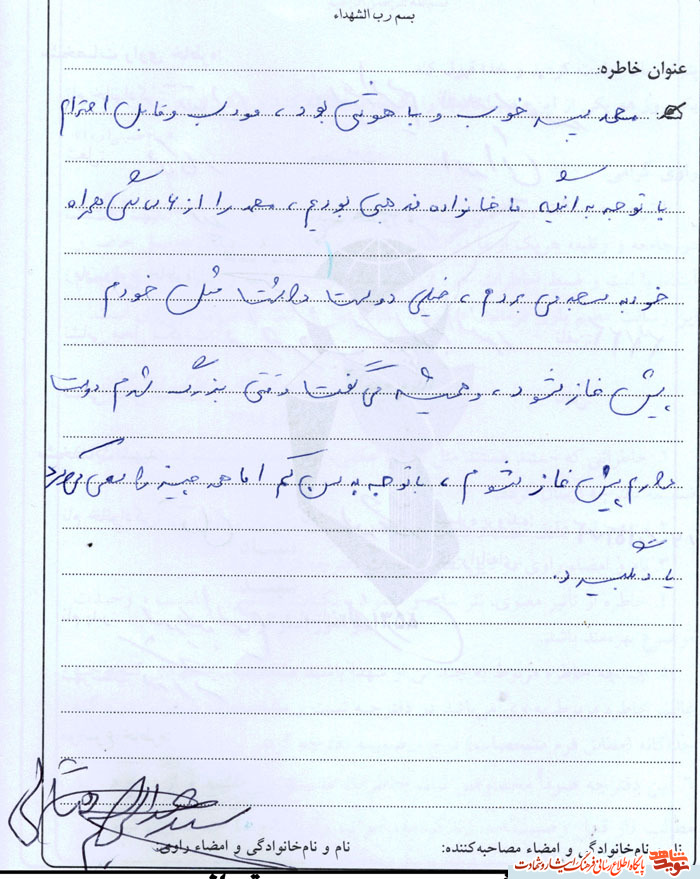 بسم رب الشهداء
عنوان خاطره:
محمد بچه خوب و با هوشی بود، مودب و قابل احترام
با توجه به اینکه ما خانواده مذهبی بودیم، محمد را از ۶ سالگی همراه
خود به مسجد می بردم، خیلی دوست داشت مثل خودم
پیش نماز شود، و همیشه می گفت وقتی بزرگ شدم دوست
دارم پیش نماز شوم، با توجه به سن کم اما همه چیز را سعی می کرد
یاد بگیرد.
نام و نام‌خانوادگی و امضاء راوی:
نام و نام‌خانوادگی و امضاء مصاحبه‌کننده:
نوید شاهد
پایگاه اطلاع رسانی فرهنگ ایثار و شهادت